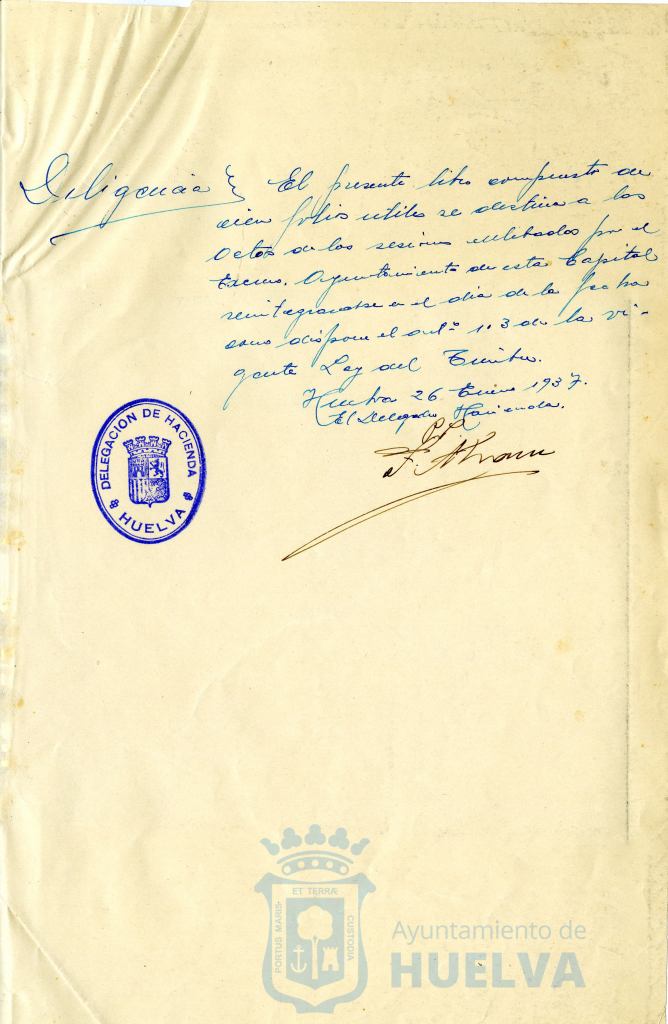 Diligencia } El presente libro compuesto de
cien folios utiles se destina a las
actas de las sesiones celebradas por el
Excmo. Ayuntamiento de esta Capital
reintegrandose en el dia de la fecha
como dispone el artº 103 de la vi-
gente Ley del Timbre.
Huelva 26 Enero 1937.
El Delegado Hacienda,
DELEGACION DE HACIENDA
HUELVA
PORTUS MARIS
ET TERRÆ
CUSTODIA
Ayuntamiento de
HUELVA